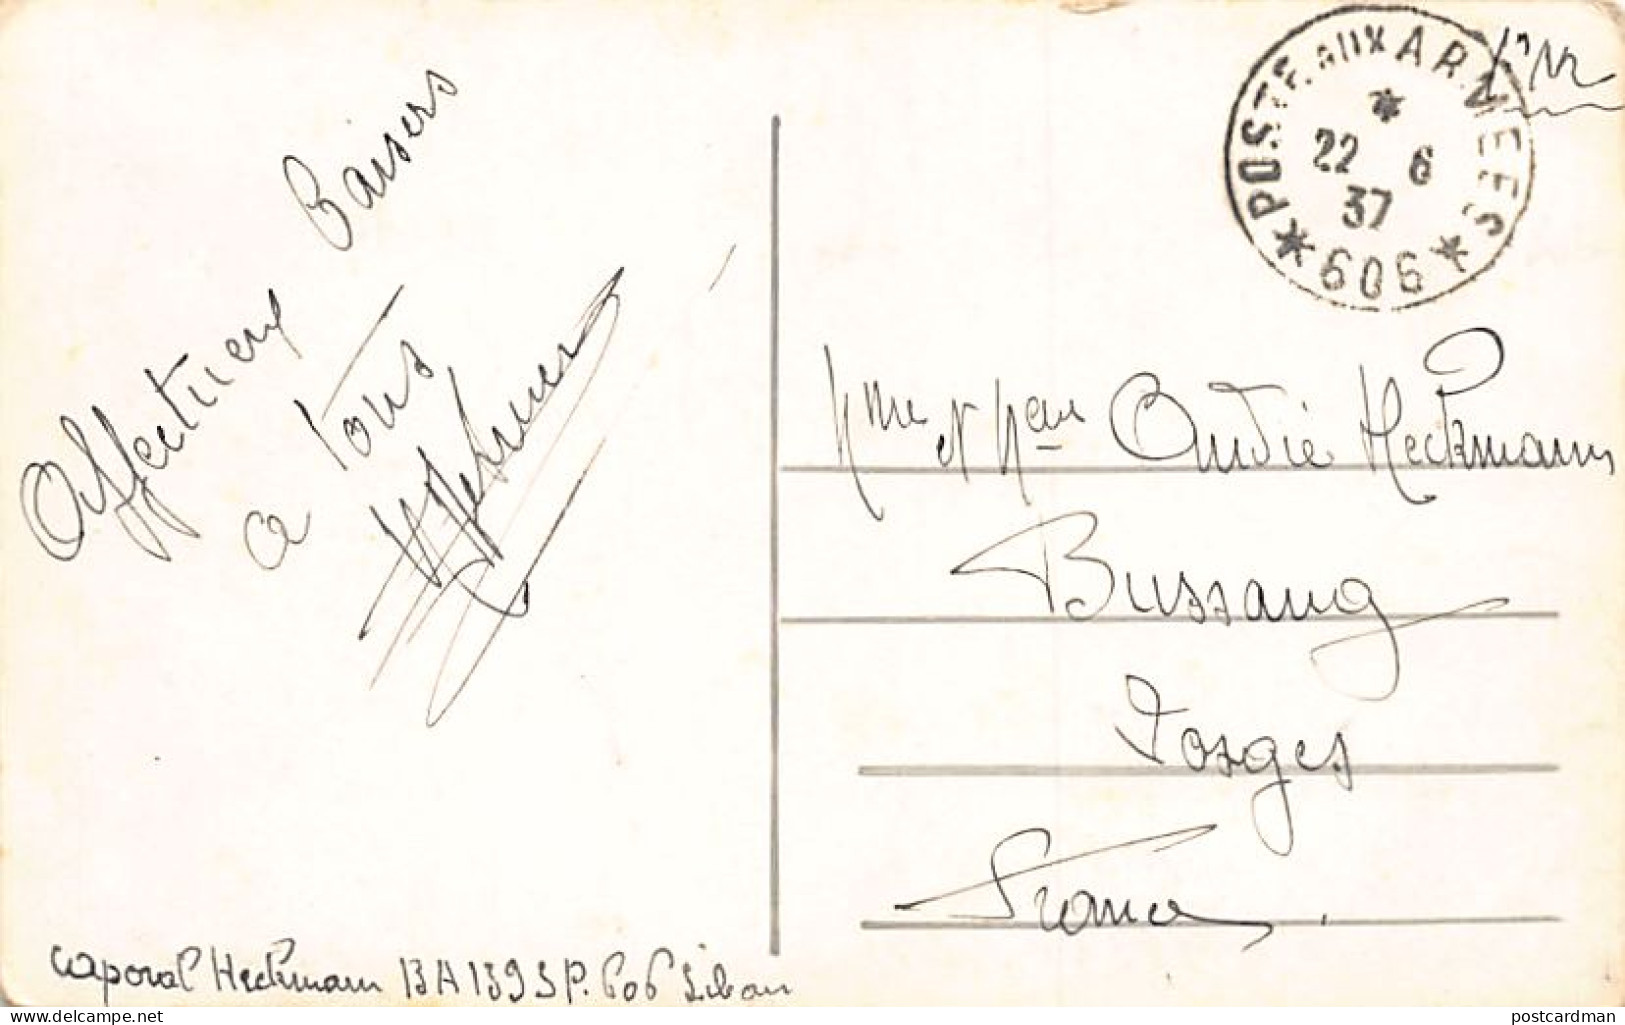 Affectueux Baisers
a Tous
Heckmann
POSTE AUX ARMEES
22 6
37
* 606 *
F.M.
Mme et Mr André Heckmann
Bussang
Vosges
France.
caporal Heckmann BA 139 SP. 606 Liban
delcampe.net
postcardman